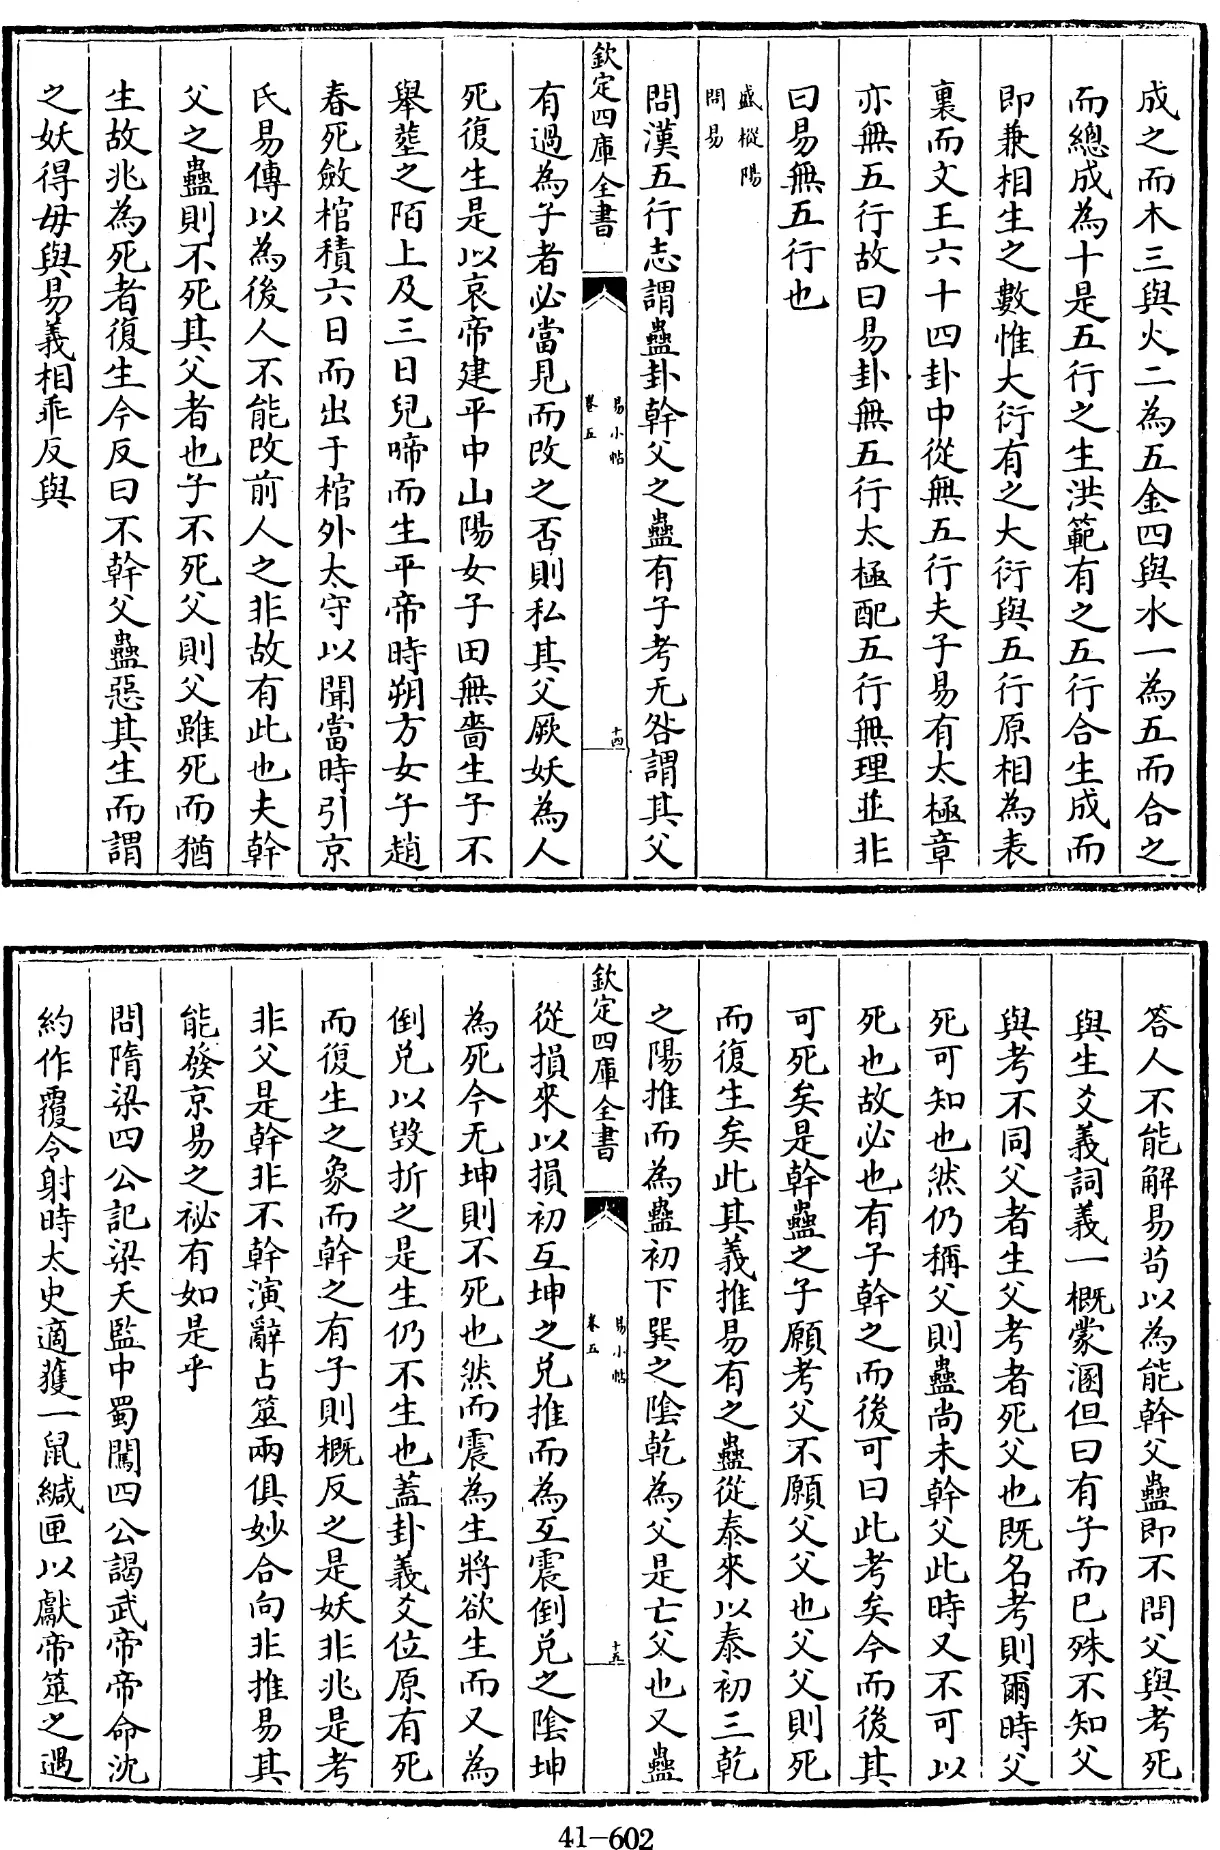 成之而木三與火二為五金四與水一為五而合之
而總成為十是五行之生洪範有之五行合生成而
即兼相生之數惟大衍有之大衍與五行原相為表
裏而文王六十四卦中從無五行夫子易有太極章
亦無五行故曰易卦無五行太極配五行無理並非
曰易無五行也
盛樅陽
問易
問漢五行志謂蠱卦幹父之蠱有子考无咎謂其父
欽定四庫全書
易小帖
卷五
十四
有過為子者必當見而改之否則私其父厥妖為人
死復生是以哀帝建平中山陽女子田無嗇生子不
舉塟之陌上及三日兒啼而生平帝時朔方女子趙
春死斂棺積六日而出于棺外太守以聞當時引京
氏易傳以為後人不能改前人之非故有此也夫幹
父之蠱則不死其父者也子不死父則父雖死而猶
生故兆為死者復生今反曰不幹父蠱惡其生而謂
之妖得毋與易義相乖反與
答人不能解易茍以為能幹父蠱即不問父與考死
與生爻義詞義一概蒙溷但曰有子而已殊不知父
與考不同父者生父考者死父也既名考則爾時父
死可知也然仍稱父則蠱尚未幹父此時又不可以
死也故必也有子幹之而後可曰此考矣今而後其
可死矣是幹蠱之子願考父不願父父也父父則死
而復生矣此其義推易有之蠱從泰來以泰初三乾
之陽推而為蠱初下巽之陰乾為父是亡父也又蠱
欽定四庫全書
易小帖
卷五
十五
從損來以損初互坤之兌推而為互震倒兌之陰坤
為死今无坤則不死也然而震為生將欲生而又為
倒兌以毀折之是生仍不生也蓋卦義爻位原有死
而復生之象而幹之有子則概反之是妖非兆是考
非父是幹非不幹演辭占筮兩俱妙合向非推易其
能發京易之祕有如是乎
問隋梁四公記梁天監中蜀闖四公謁武帝帝命沈
約作覆令射時太史適獲一鼠緘匣以獻帝筮之遇
41-602